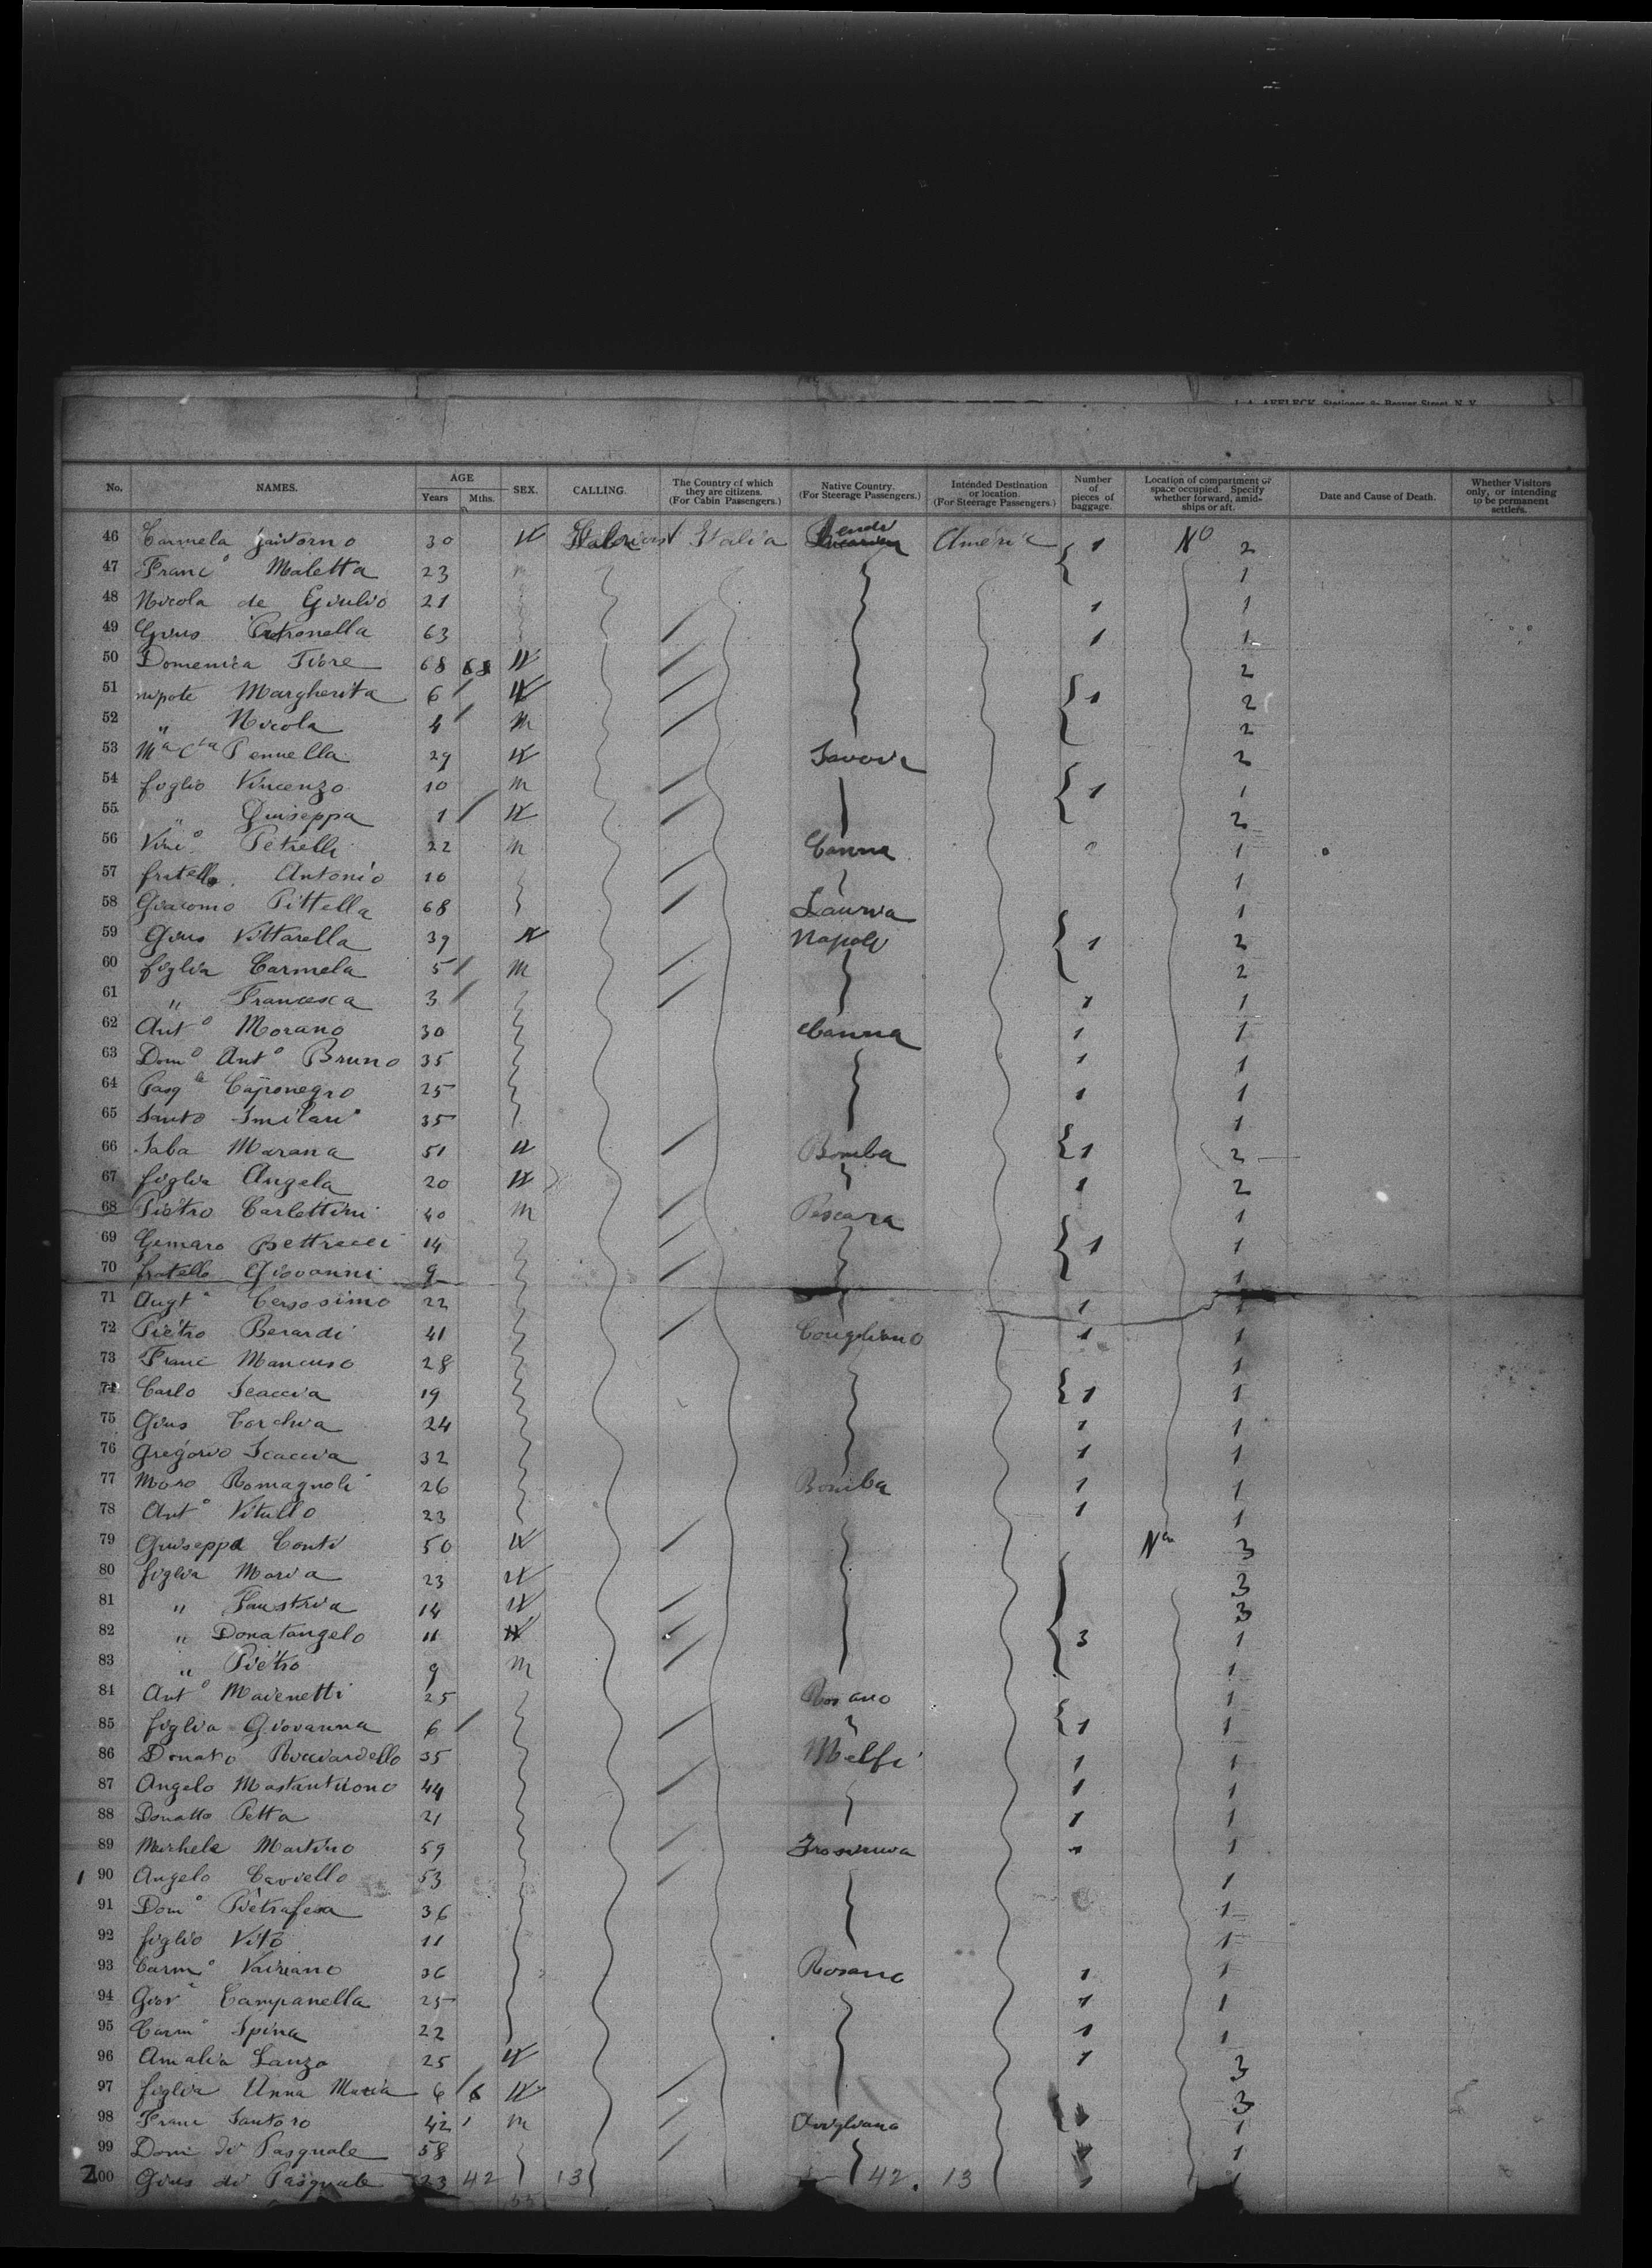 No. NAMES. AGE Years Mths. SEX. CALLING. The Country of which they are citizens. (For Cabin Passengers.) Native Country. (For Steerage Passengers.) Intended Destination or location. (For Steerage Passengers.) Number of pieces of baggage. Location of compartment or space occupied. Specify whether forward, amidships or aft. Date and Cause of Death. Whether Visitors only, or intending to be permanent settlers.
46 Carmela 30 Italia America 1 No 2
47 Franc° Maletta 23 1
48 Nicola de Giulio 21 1 1
49 Gius Petronella 63 1 1
50 Domenica Fiore 68 68 2
51 nipote Margherita 6 1 2
52 " Nicola 4 m 2
53 Ma Cta Pennella 29 2
54 figlio Vincenzo 10 m 1 1
55 " Giuseppa 1 2
56 Vinc° Petrelli 22 m Canna 1
57 fratello Antonio 10 1
58 Giacomo Pittella 68 Lauria 1
59 Gius Vittarella 39 Napoli 1 2
60 figlia Carmela 5 m 2
61 " Francesca 3 1 1
62 Ant° Morano 30 Canna 1 1
63 Dom° Ant° Bruno 35 1 1
64 Pasqle Caponegro 25 1 1
65 Santo Smilari 35 1
66 Saba Marana 51 Bomba 1 2
67 figlia Angela 20 1 2
68 Pietro Carlettini 40 m Pescara 1
69 Gennaro 14 1 1
70 fratello Giovanni 9 1
71 Cersosimo 22 1
72 Pietro Berardi 41 Corigliano 1 1
73 Franc Mancuso 28 1
74 Carlo Scaccia 19 1 1
75 Gius Torchia 24 1 1
76 Gregorio Scaccia 32 1 1
77 Moro Romagnoli 26 Bomba 1 1
78 Ant° Vitullo 23 1 1
79 Giuseppa Conti 50 Na 3
80 figlia Maria 23 3
81 " 14 3
82 " Donatangelo 11 3 1
83 " Pietro 9 m 1
84 Ant° 25 1
85 figlia Giovanna 6 1 1
86 Donato 35 Melfi 1 1
87 Angelo Mastantuono 44 1 1
88 Donatto Petta 21 1 1
89 Michele Martino 59 1
1 90 Angelo Caviello 53 1
91 Dom° Pietrafesa 36 1
92 figlio Vito 11 1
93 Carm° 36 Rosano 1 1
94 Giov Campanella 25 1 1
95 Carm° Spina 22 1 1
96 Amalia Lanza 25 1 3
97 figlia Anna Maria 6 6 3
98 Franc Santoro 42 m Avigliano 1
99 Dom di Pasquale 58 1
200 Gius di Pasquale 23 42 13 42. 13 1